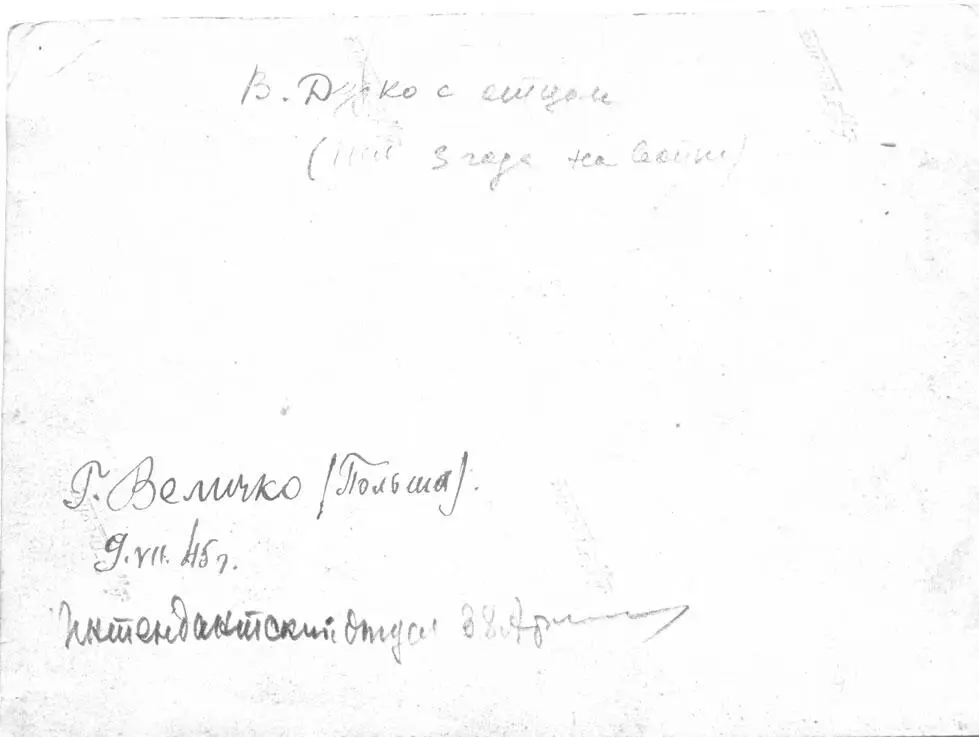 с отцом
3 года на войне)
Г. Величко (Польша).
9.VII.45г.
Интендантский отдел 38 Армии